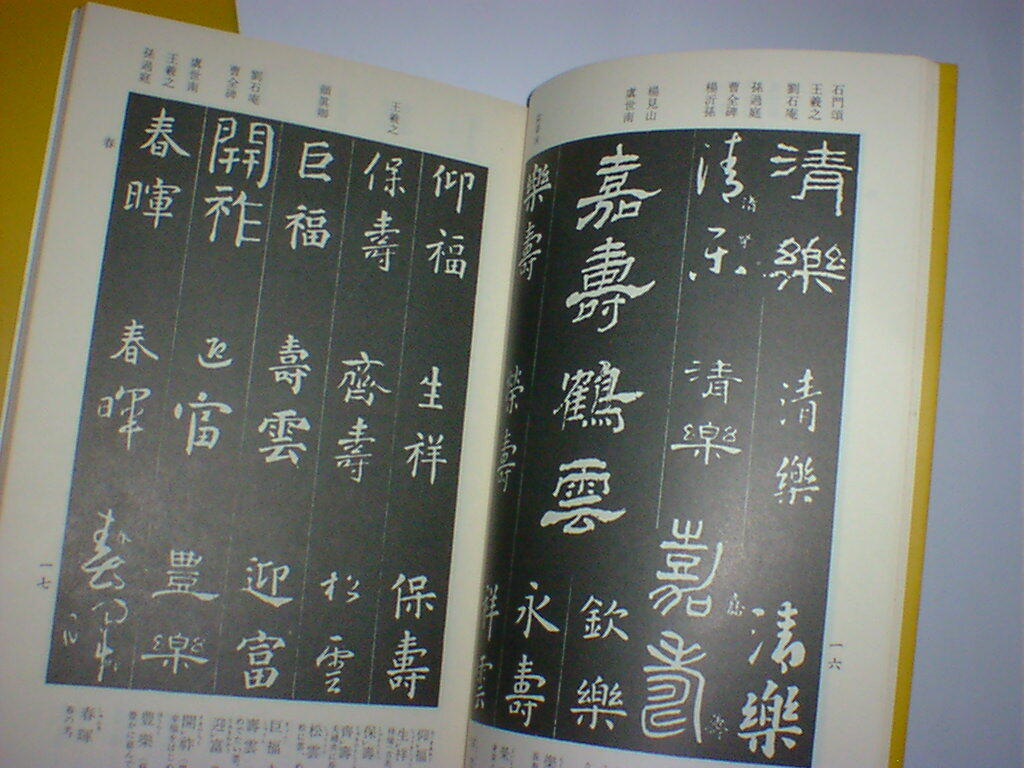 石門頌
王羲之
劉石庵
孫過庭
曹全碑
楊沂孫
楊見山
虞世南
清樂
清樂
清樂
清樂
清樂
嘉壽
嘉壽
鶴雲
欽樂
永壽
樂壽
榮壽
祥雲
一六
王羲之
顏眞卿
劉石庵
曹全碑
虞世南
王羲之
孫過庭
春
仰福
生祥
保壽
保壽
齊壽
松雲
巨福
壽雲
迎富
開祚
迎富
豊樂
春暉
春暉
春暉
一七
仰福
生祥
保壽
齊壽
松雲
巨福
壽雲
迎富
開祚
豊樂
春暉